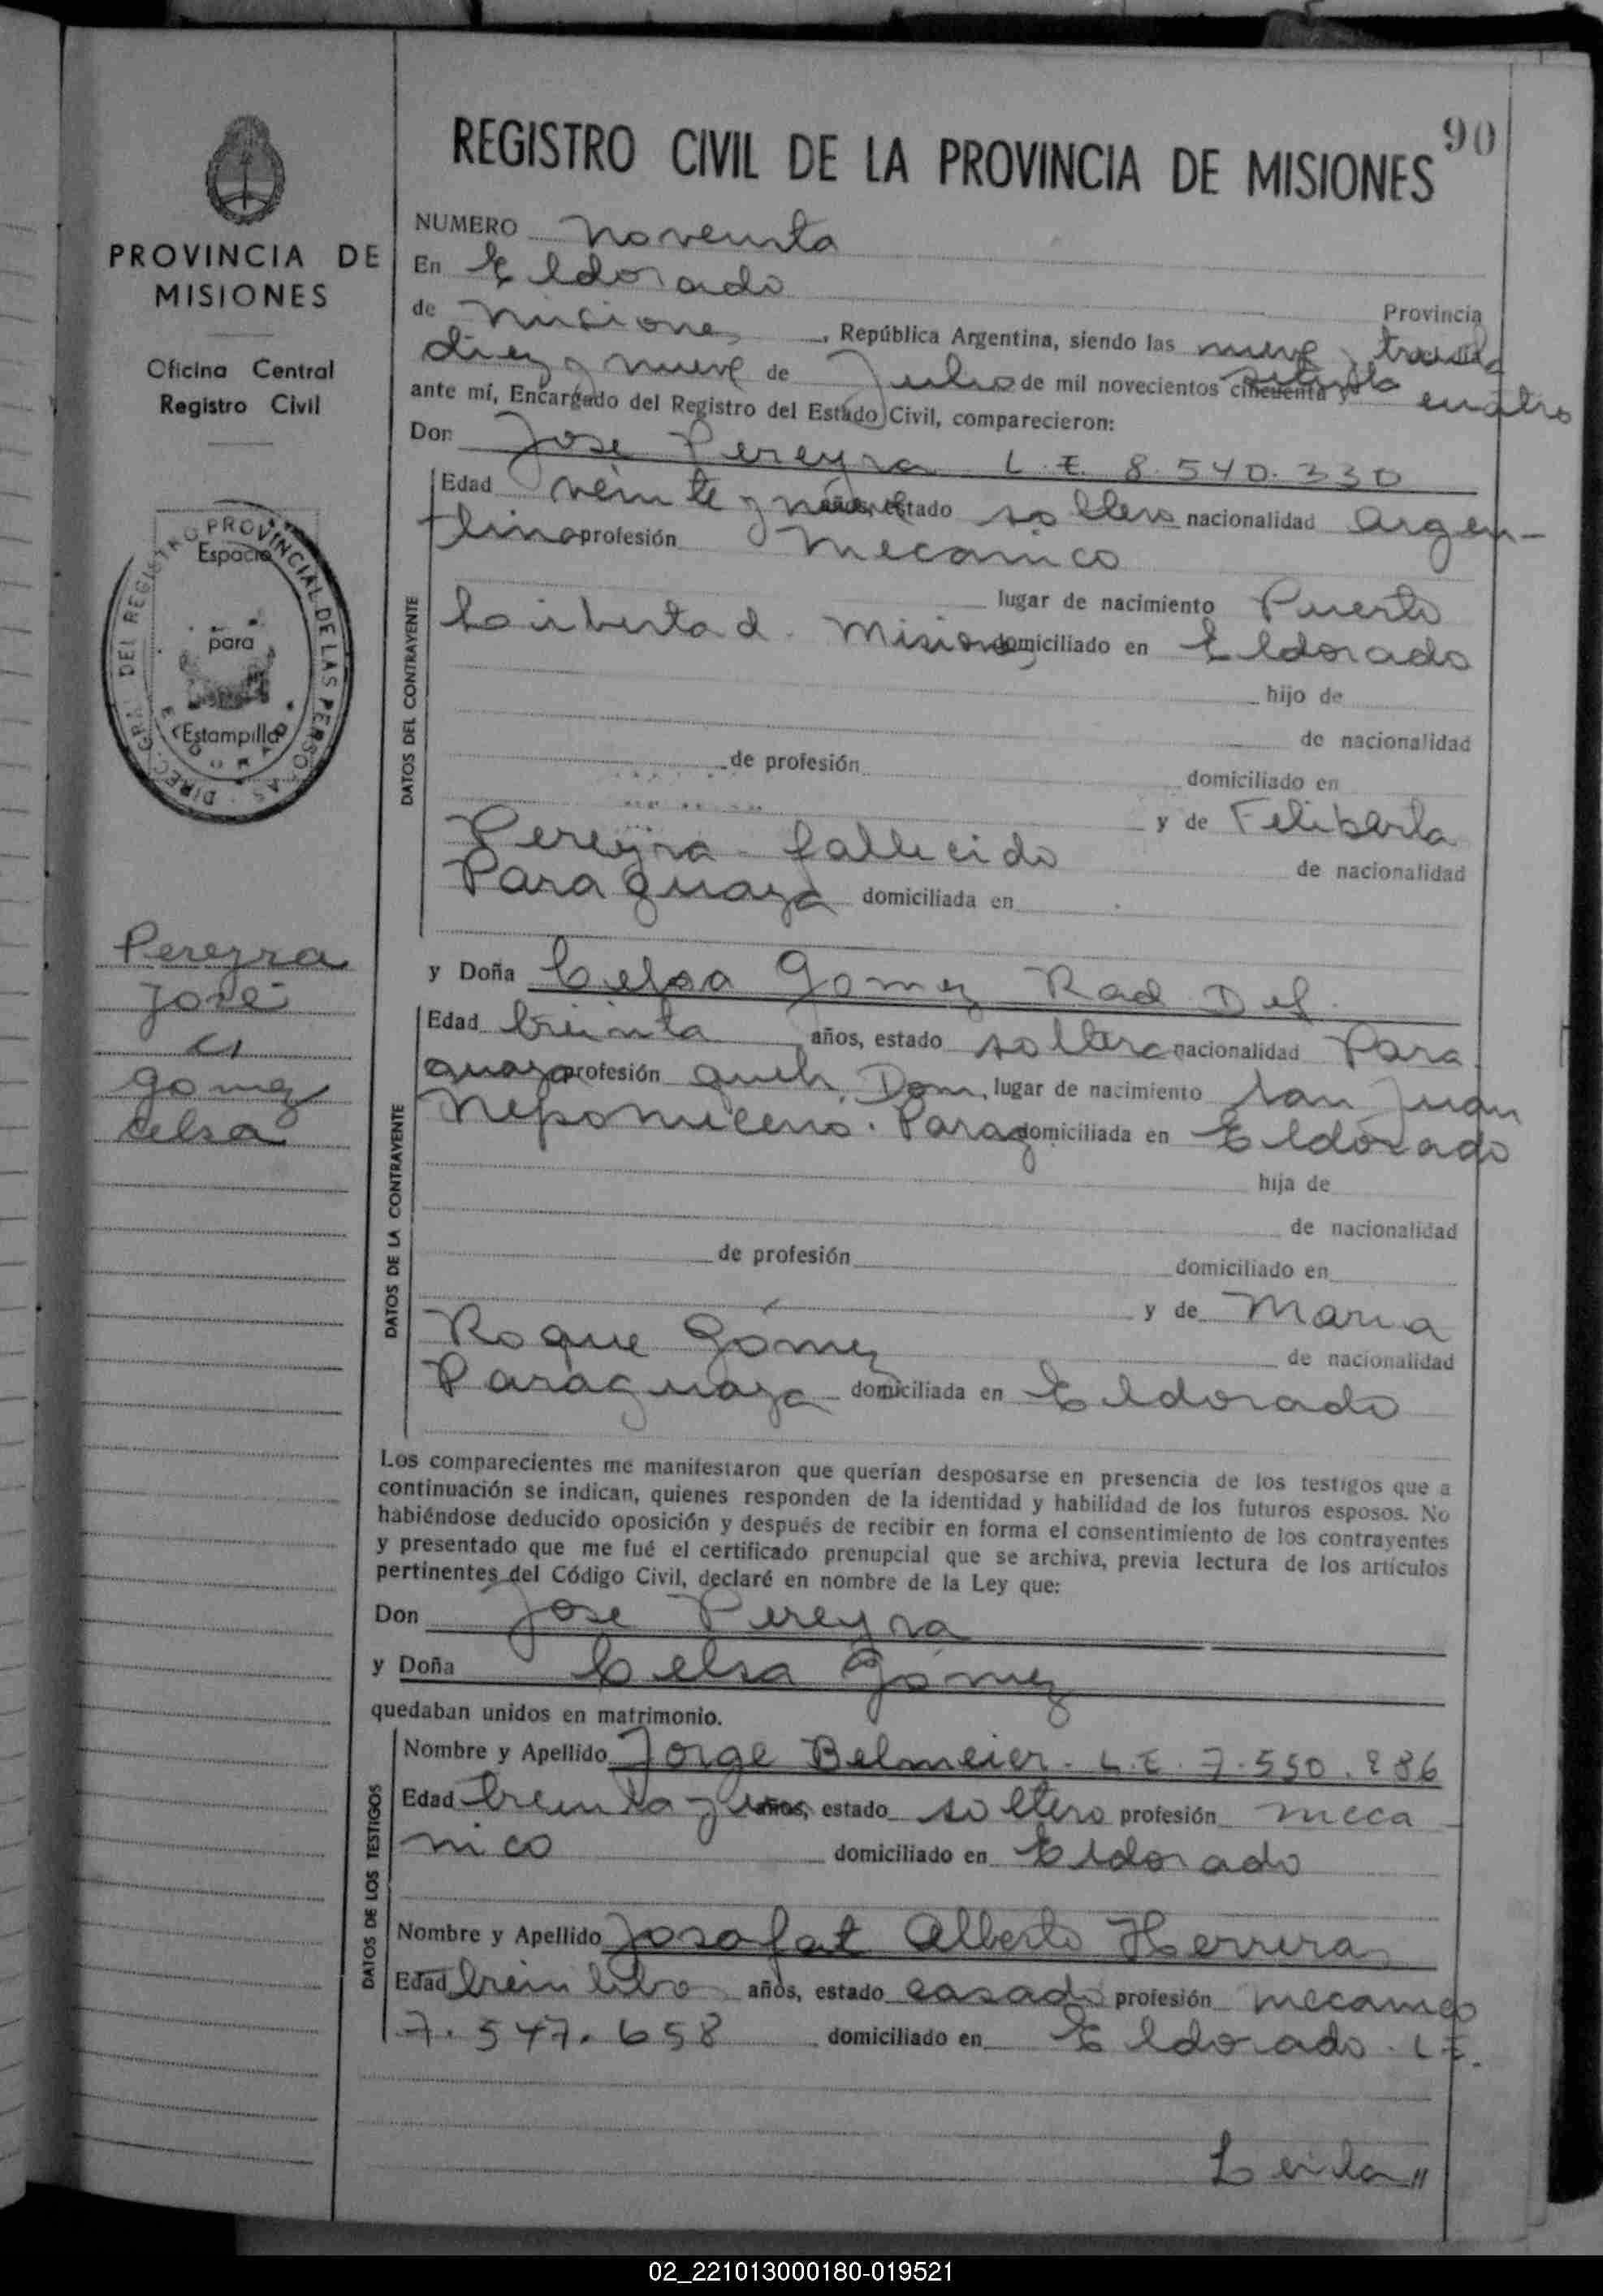 90
REGISTRO CIVIL DE LA PROVINCIA DE MISIONES
PROVINCIA DE
MISIONES
Oficina Central
Registro Civil
DIREC. GRAL. DEL REGISTRO PROVINCIAL DE LAS PERSONAS
ELDORADO
Espacio
para
Estampilla
Pereyra
José
c/
Gomez
Celsa
NUMERO noventa
En Eldorado
Provincia
de Misiones, República Argentina, siendo las nueve y treinta
diez y nueve de Julio de mil novecientos cincuenta y setenta cuatro
ante mí, Encargado del Registro del Estado Civil, comparecieron:
Don Jose Pereyra L.E. 8.540.330
DATOS DEL CONTRAYENTE
Edad veinte y nueve años, estado soltero nacionalidad argen-
tino profesión mecanico
lugar de nacimiento Puerto
Libertad. Misiones domiciliado en Eldorado
hijo de
de nacionalidad
de profesión domiciliado en
y de Feliberta
Pereyra - fallecido
de nacionalidad
Paraguaya domiciliada en
y Doña Celsa Gomez Rad Def.
DATOS DE LA CONTRAYENTE
Edad treinta años, estado soltera nacionalidad Para
guaya profesión queh. Dom. lugar de nacimiento San Juan
Nepomuceno. Parag domiciliada en Eldorado
hija de
de nacionalidad
de profesión domiciliado en
y de Maria
Roque Gómez
de nacionalidad
Paraguaya domiciliada en Eldorado
Los comparecientes me manifestaron que querían desposarse en presencia de los testigos que a
continuación se indican, quienes responden de la identidad y habilidad de los futuros esposos. No
habiéndose deducido oposición y después de recibir en forma el consentimiento de los contrayentes
y presentado que me fué el certificado prenupcial que se archiva, previa lectura de los artículos
pertinentes del Código Civil, declaré en nombre de la Ley que:
Don Jose Pereyra
y Doña Celsa Gómez
quedaban unidos en matrimonio.
DATOS DE LOS TESTIGOS
Nombre y Apellido Jorge Belmeier - L.E. 7.550.886
Edad treinta y un años, estado soltero profesión meca
nico domiciliado en Eldorado
Nombre y Apellido Josafat Alberto Herrera
Edad años, estado casado profesión mecanico
7.547.658 domiciliado en Eldorado. L.E.
02_221013000180-019521